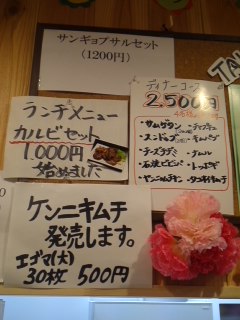 サンギョプサルセット
(1200円)
ランチメニュー
カルビセット
1.000円
始めました
ディナーコース
2.500円
・サムゲタン
・チャプチェ
・スンドゥブ
・キムパプ
・チーズチヂミ
・石焼ビビンバ
・トッポギ
・ヤンニョムチキン
ケンニキムチ
発売します。
エゴマ(大)
30枚 500円